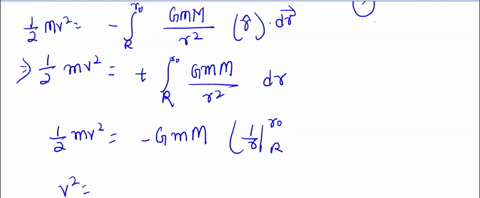 ½ mv² = - ∫_R^{r₀} GmM/r² (r̂)·d⃗r
⇒ ½ mv² = + ∫_R^{r₀} GmM/r² dr
½ mv² = - GmM (1/r |_R^{r₀}
v² =